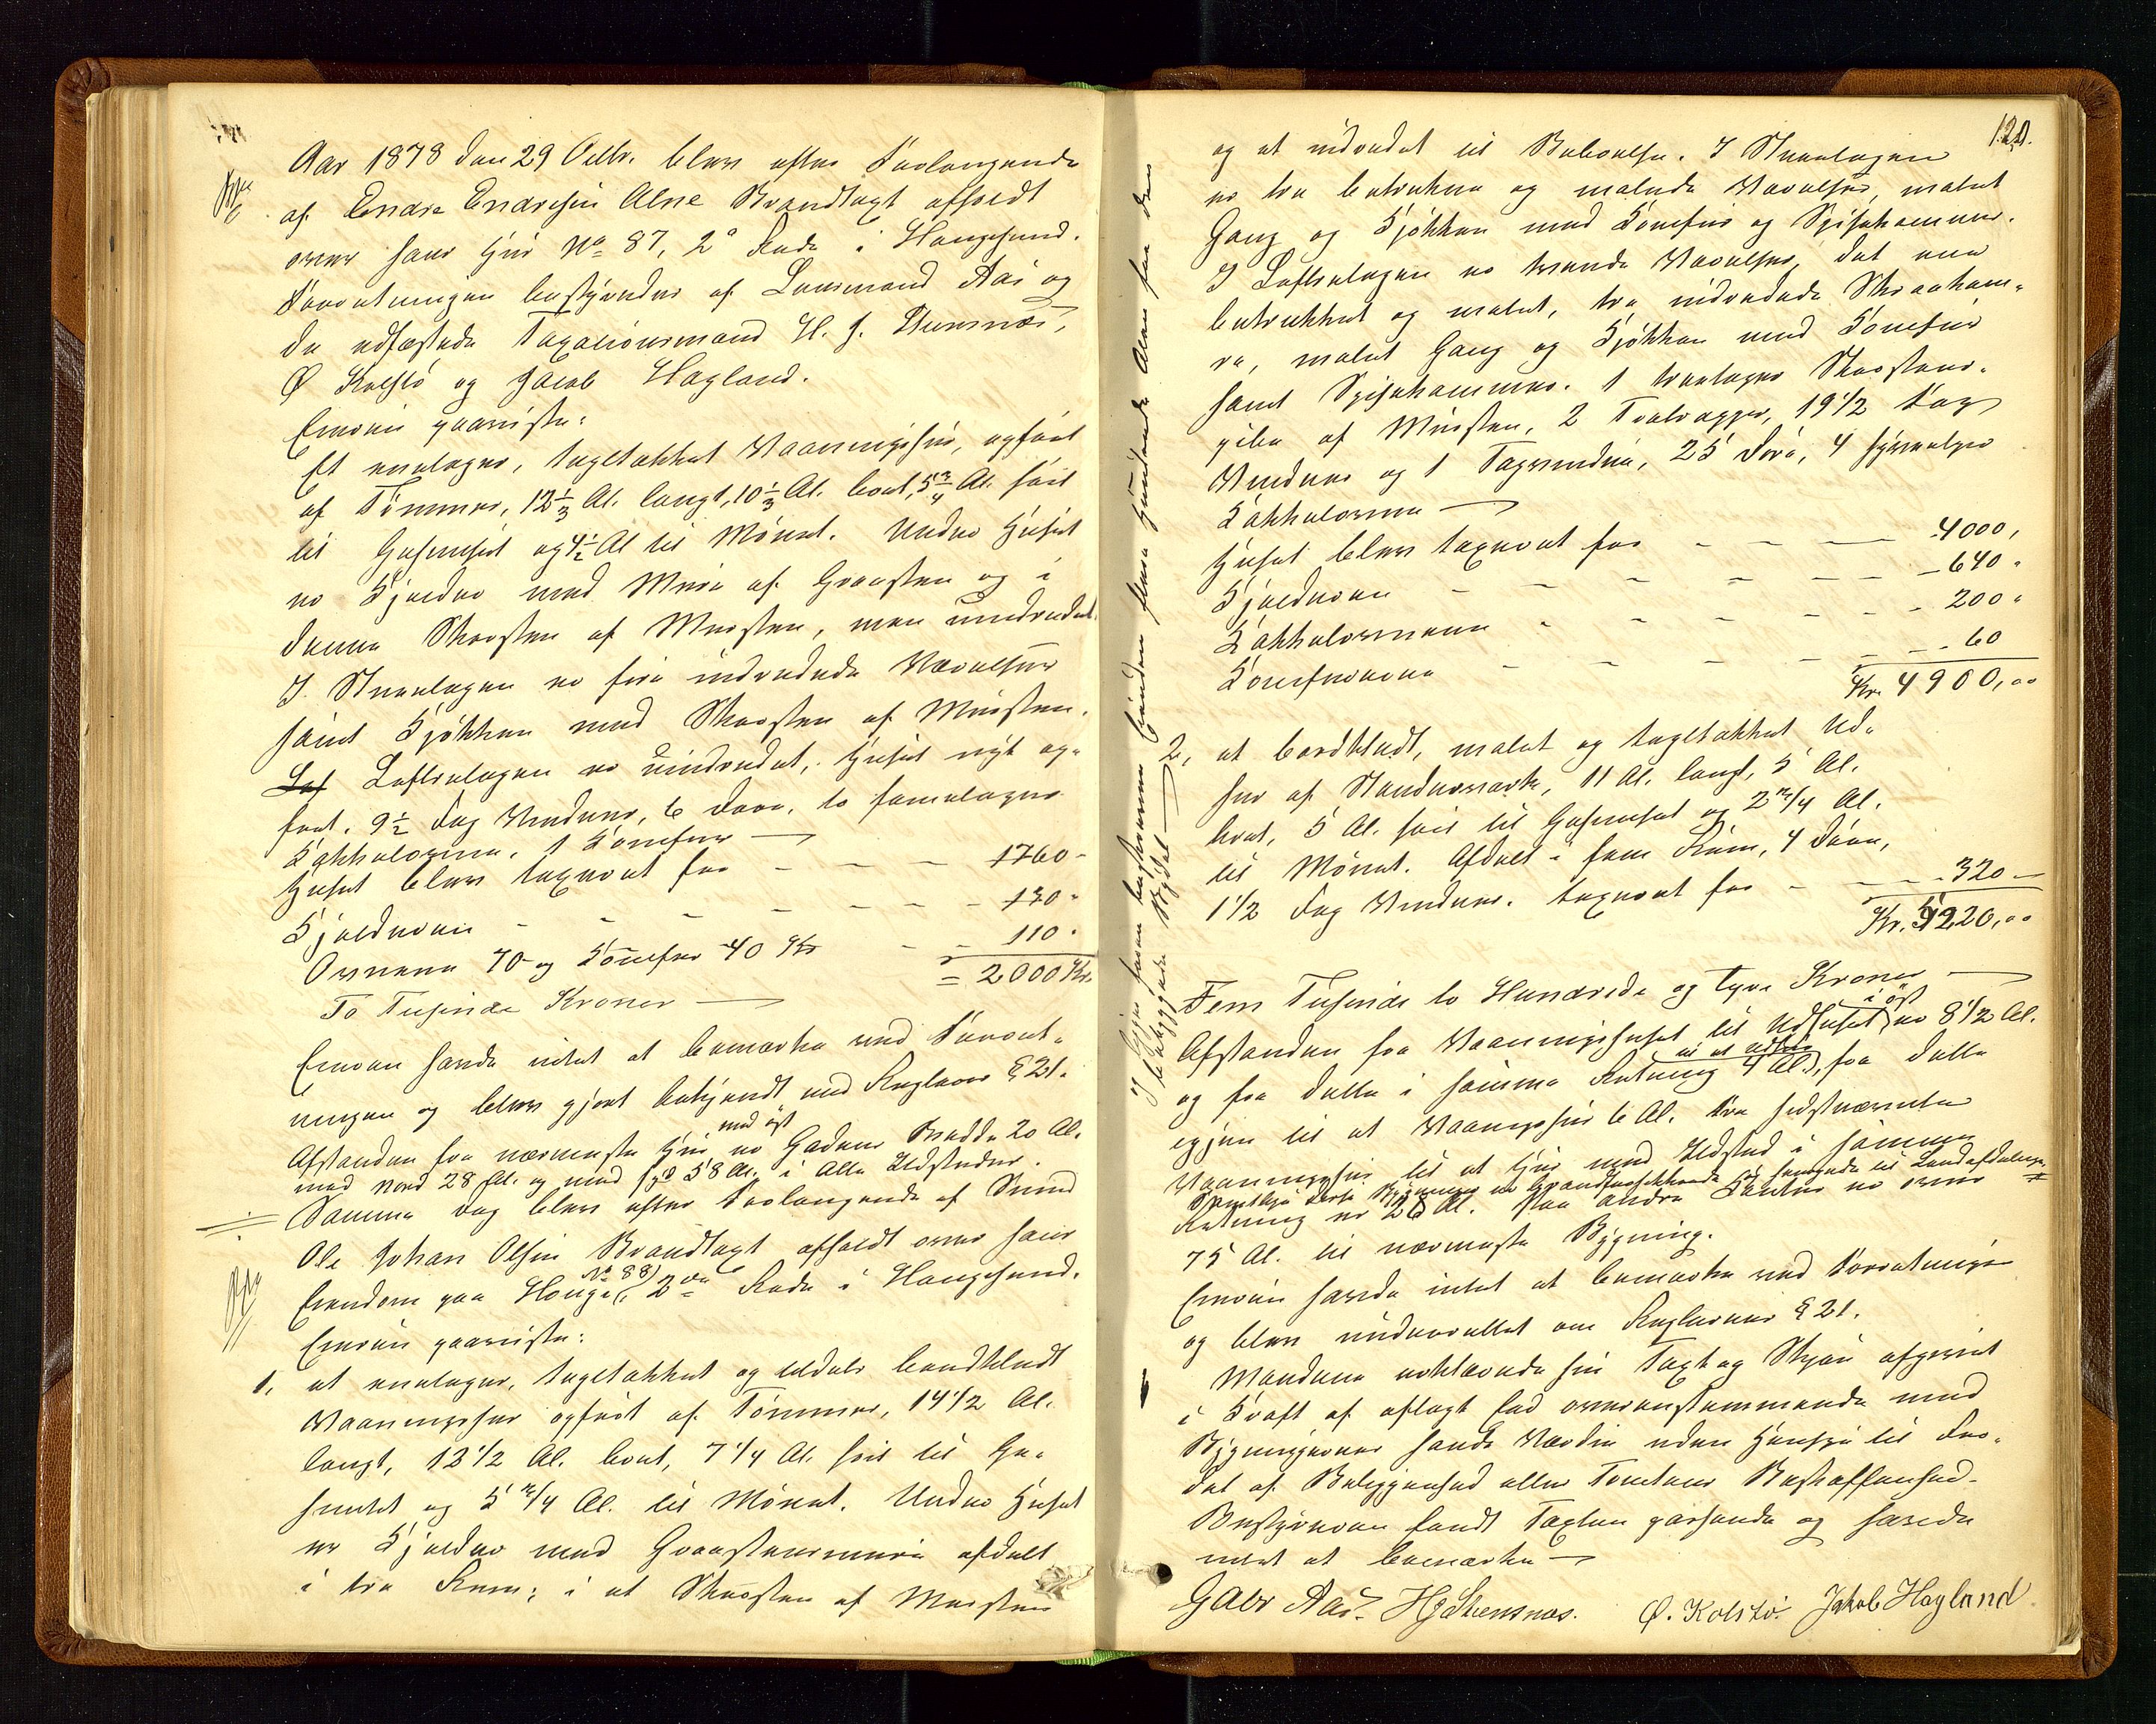 Aar 1878 den 29 Octbr. blev efter Forlangende
af Endre Endresen Alne Brandtaxt afholdt
over hans Huus No 87, 2den Rode i Haugesund.
Forretningen bestyredes af Lensmand Aas og
de edfæstede Taxationsmænd H. J. Stensnæs,
Ø Kolstø og Jacob Hagland.
Enven paaviste:
Et eenetages, tagltækket Vaaningshus, opført
af Tømmer, 12 1/3 Al. langt, 10 1/3 Al. bredt, 5 3/4 Al. høit
til Gesimset og 4 1/2 Al til Mønet. Under Huset
er Kjælder med Mure af Graasten og i
denne Skorsten af Mursten, men uindredet.
I Stueetagen er fire indredede Værelser
samt Kjøkken med Skorsten af Mursten.
Lof Loftsetagen er uindredet, Huset nyt op-
ført. 9 1/2 Fag Vinduer, 6 Døre, to femetages
Kakkelovne, 1 Komfur
Huset blev taxeret for - - - 1760 -
Kjælderen - - - - - - 130 "
Ovnene 70 og Komfur 40 Kr - - 110 "
= 2000 Kr.
To Tusinde Kroner
Enven havde intet at bemærke ved Forret-
ningen og blev gjort bekjendt med Reglens § 21.
med øst
Afstanden fra nærmeste Hus er Gadens Bredde 20 Al.
mod Nord 28 Al. og mod Syd 58 Al. i Alle Ildsteder.
Samme Dag blev efter Forlangende af Smed
Ole Johan Olsen Brandtaxt afholdt over hans
No 88)
Eiendom paa Hauge (2den Rode i Haugesund.
Enven paaviste:
1, et eenetages, tagltækket og udvels bordklædt
Vaaningshus opført af Tømmer, 14 1/2 Al.
langt, 12 1/2 Al. bredt, 7 1/4 Al. høit til Ge-
simset og 5 3/4 Al. til Mønet. Under Huset
er Kjælder med Graastensmure afdelt
i tre Rum; i et Skorsten af Mursten
120.
og et indredet til Beboelse. I Stueetagen
er tre betrukne og malede Værelser, malet
Gang og Kjøkken med Komfur og Spisekammer.
I Loftsetagen er trende Værelser, det ene
betrukket og malet, tre indredede Skraakam-
re, malet Gang og Kjøkken med Komfur
samt Spisekammer. 1 treetages Skorstens-
pibe af Mursten, 2 Tralrapper, 19 1/2 Fag
Vinduer og 1 Tagvindue, 25 Døre, 4
Kakkelovne
Huset blev taxeret for - - - 4000,
Kjælderen - - - - - - 640 "
Kakkelovnene - - - - - 200 "
Komfurerne - - - - - 60
Kr. 4900,00
2, et bordklædt, malet og tagltækket Ud-
hus af Stenderværk, 11 Al. langt, 5 Al.
bredt, 5 Al. høit til Gesimset og 2 3/4 Al.
til Mønet. Afdelt i fem Rum, 4 Døre,
1 1/2 Fag Vinduer. taxeret for - - - 320 -
Kr. 5220,00
Fem Tusinde to Hundrede og tyve Kroner
i øst
Afstanden fra Vaaningshuset til Udhuset er 8 1/2 Al.
til et udhus
og fra dette i samme Retning 4 Al., fra dette
igjen til et Vaaningshus 6 Al. Fra sidstnævnte
Vaaningshus til et Hus med Ildsted i samme
Samtlige disse Bygninger er brandforsikkrede
Retning er 28 Al. Paa andre Kanter er over
75 Al. til nærmeste Bygning.
Enven havde intet at bemærke ved Forretningen
og blev underrettet om Reglernes § 21.
Mændene erklærede sin Taxt og Skjøn afgivet
i Kraft af aflagt Eed overensstemmende med
Bygningernes sande Værdi uden Hensyn til For-
del af Beliggenhed eller Tomtens Beskaffenhed.
Bestyreren fandt Taxten passende og havde
intet at bemærke
G Aas. HJ Stensnæs. Ø. Kolstø. Jakob Hagland